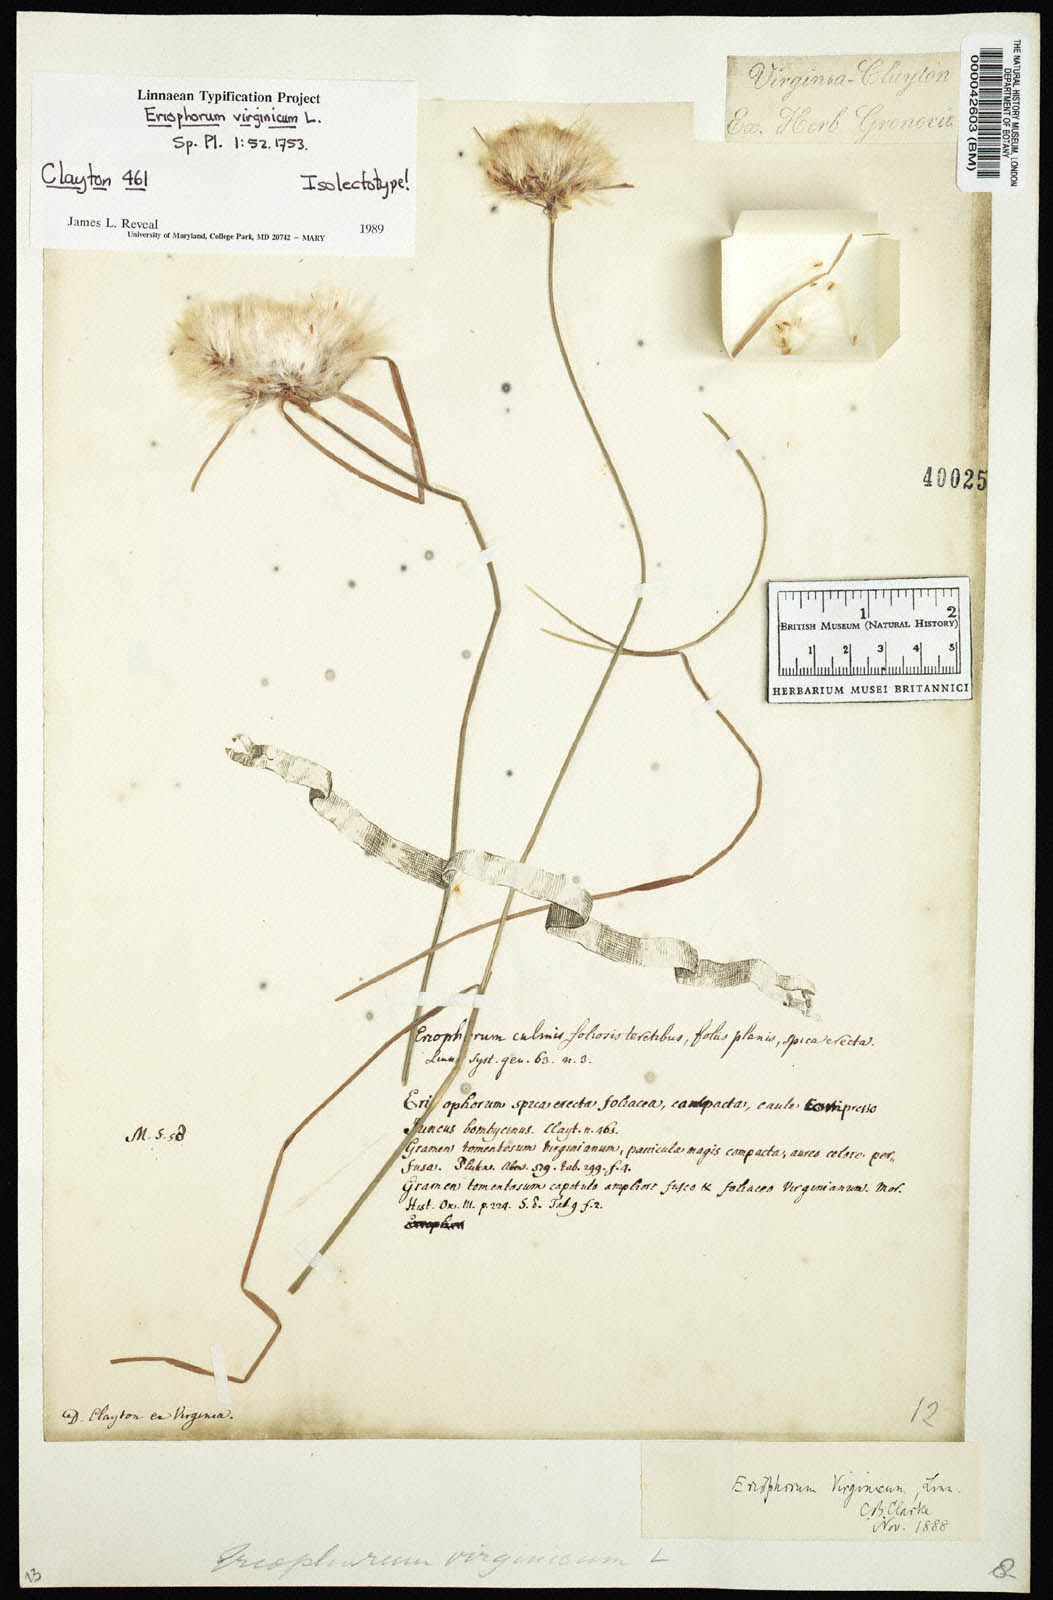 Linnaean Typification Project
Eriophorum virginicum L.
Sp. Pl. 1:52. 1753.
Clayton 461
Isolectotype!
James L. Reveal
1989
University of Maryland, College Park, MD 20742 – MARY
Virginia-Clayton
Ex. Herb Gronovii
THE NATURAL HISTORY MUSEUM, LONDON
DEPARTMENT OF BOTANY
000042603 (BM)
40025
1 2
BRITISH MUSEUM (NATURAL HISTORY)
1 2 3 4 5
HERBARIUM MUSEI BRITANNICI
Eriophorum culmis foliosis teretibus, foliis planis, spica erecta.
Linn. Syst. gen. 63. n. 3.
Eriophorum spica erecta foliacea, compacta, caule compresso
Juncus bombycinus. Clayt. n. 461.
Gramen tomentosum Virginianum, panicula magis compacta, aureo colore per-
fusa. Plukn. Alm. 179. tab. 299. f. 4.
Gramen tomentosum capitulo ampliore fusco & foliaceo Virginianum. Mor.
Hist. Ox. III. p. 224. S. 8. Tab 9 f. 2.
M. S. 58
D. Clayton ex Virginia.
12
Eriophorum Virginicum, Linn.
C.B. Clarke
Nov. 1888
Eriophorum virginicum L
13
8